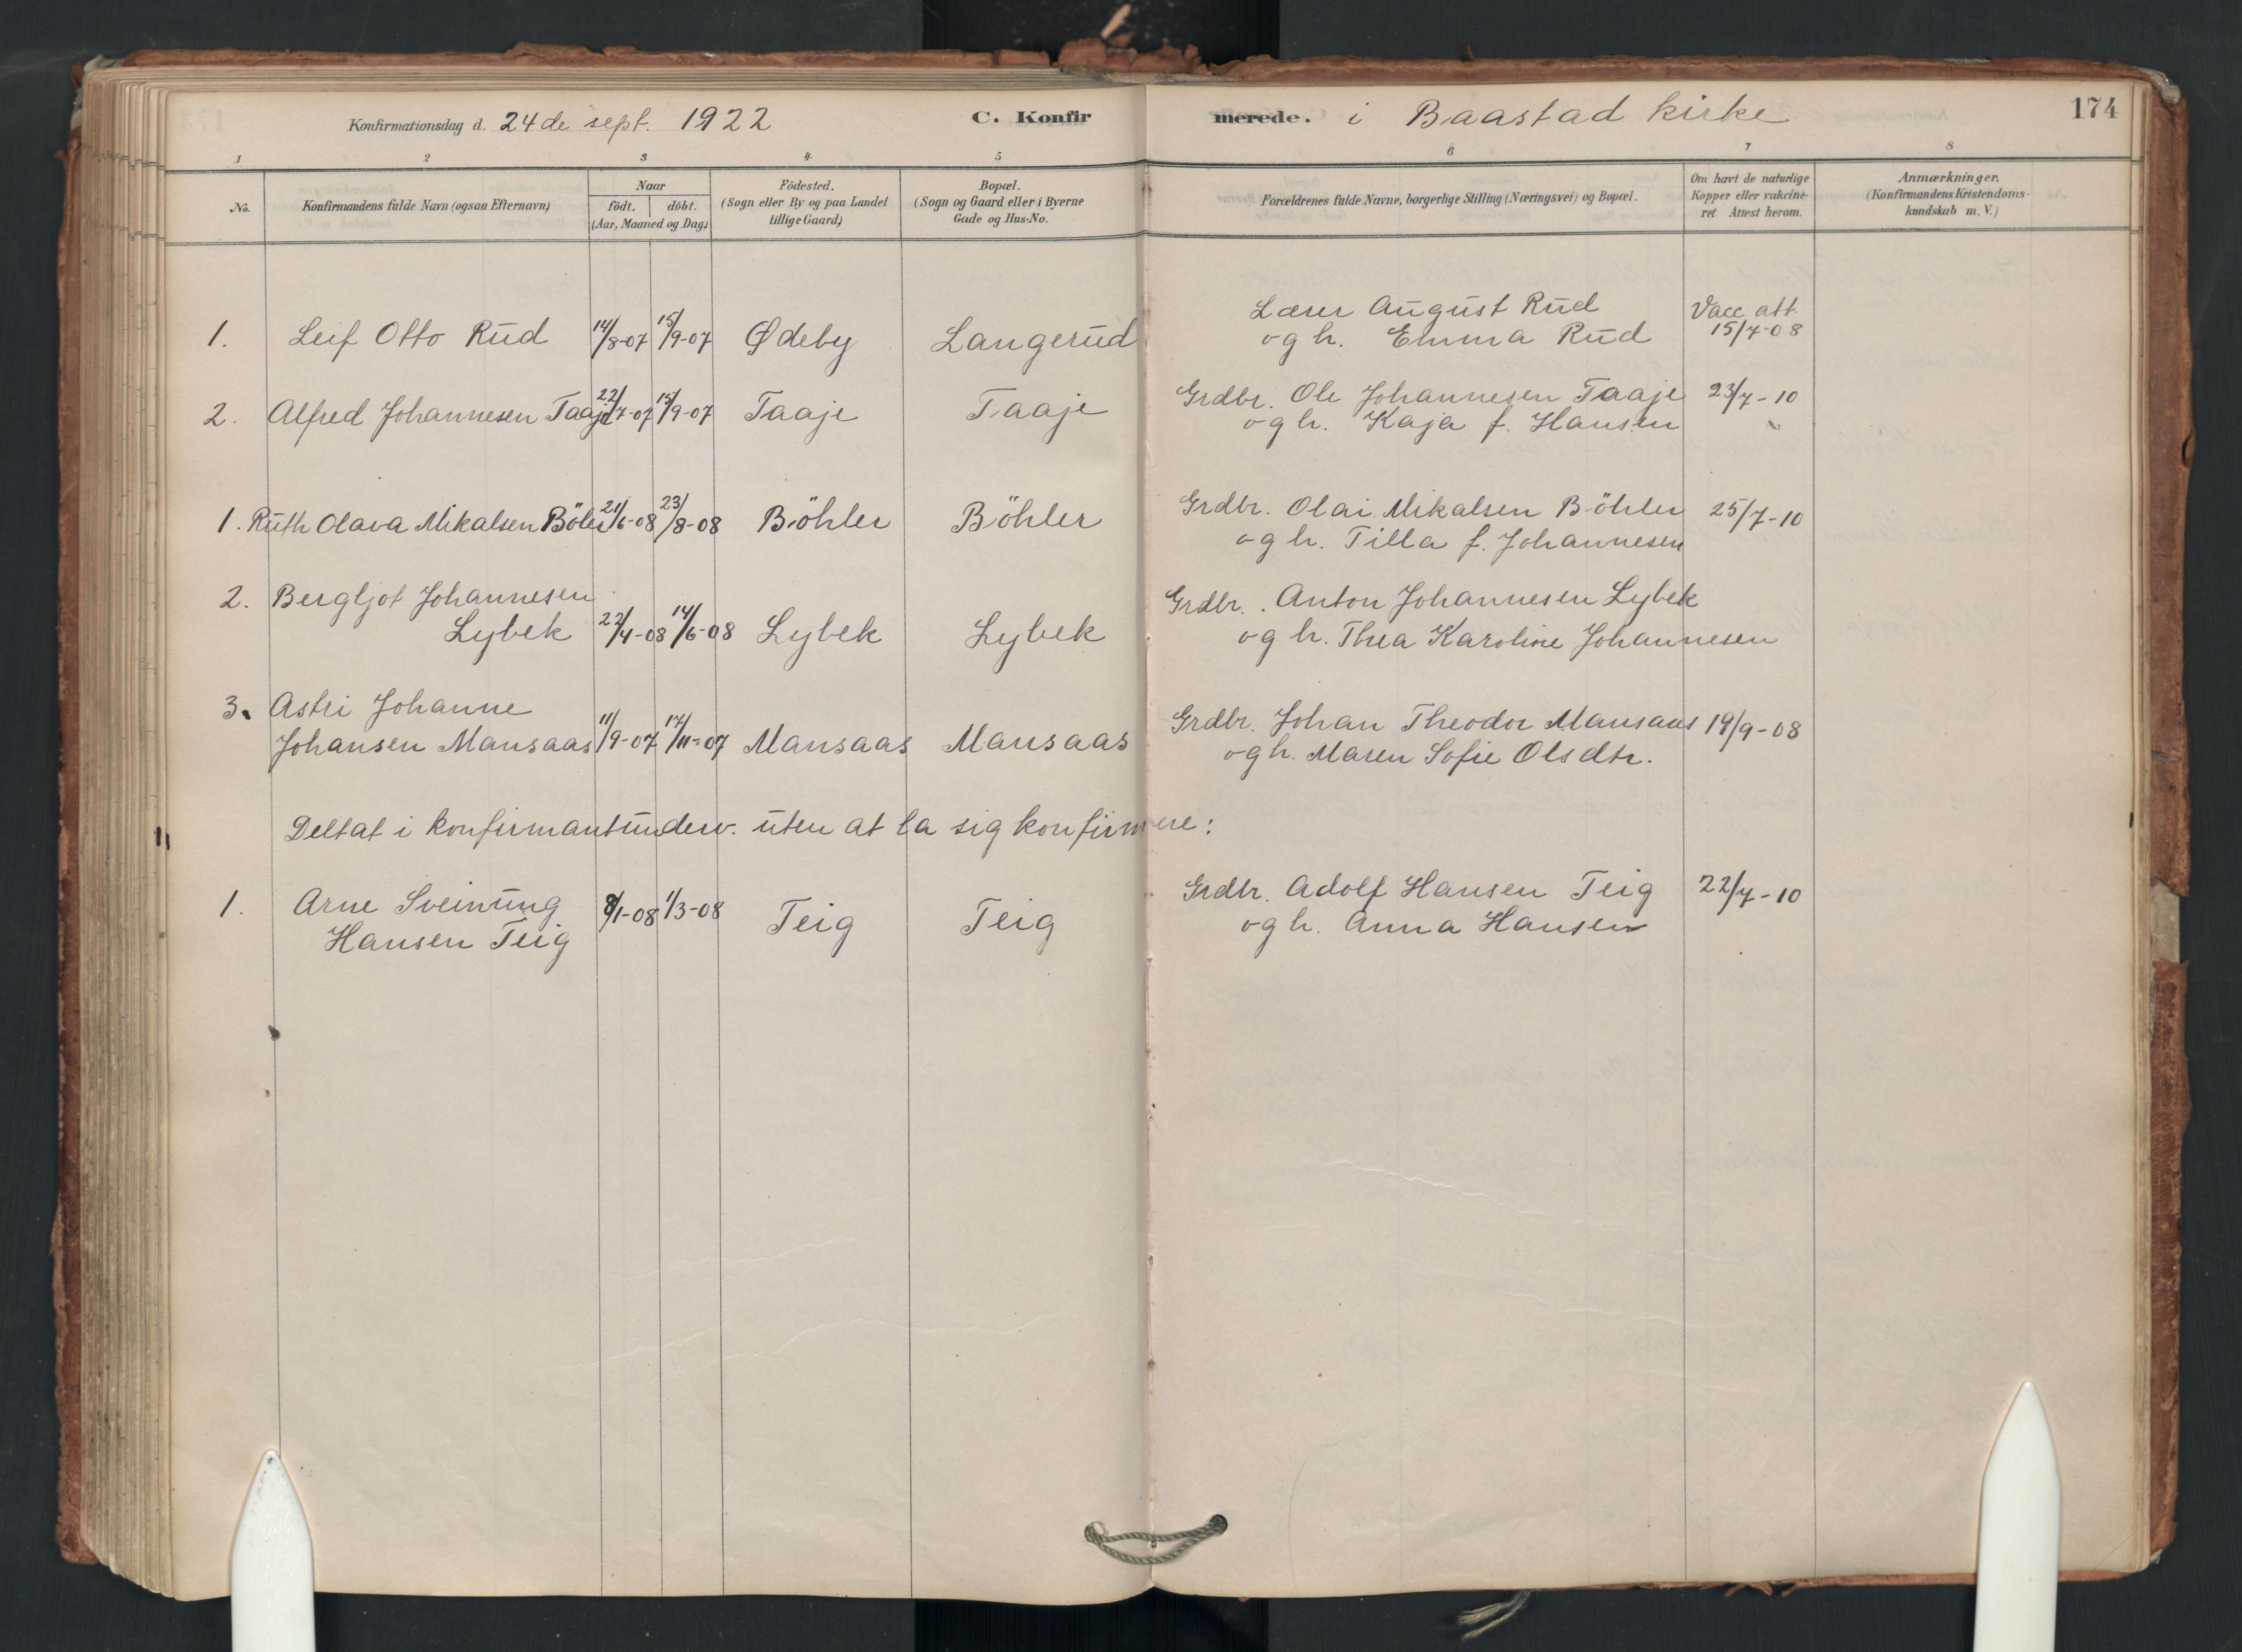 Konfirmationsdag d. 24de sept. 1922 C. Konfirmerede. i Baastad kirke 174
1 2 3 4 5 6 7 8
No. Konfirmandens fulde Navn (ogsaa Efternavn) Naar födt. döbt. (Aar, Maaned og Dag) Födested. (Sogn eller By og paa Landet tillige Gaard) Bopæl. (Sogn og Gaard eller i Byerne Gade og Hus-No. Forældrenes fulde Navne, borgerlige Stilling (Næringsvei) og Bopæl. Om havt de naturlige Kopper eller vakcineret. Attest herom. Anmærkninger. (Konfirmandens Kristendomskundskab m. V.)
1. Leif Otto Rud 14/8-07 15/9-07 Ødeby Langerud Lærer August Rud Vacc. att.
og h. Emma Rud 15/7-08
2. Alfred Johannesen Taaje 22/7-07 15/9-07 Taaje Taaje Grdbr. Ole Johannesen Taaje 23/7-10
og h. Kaja f. Hansen "
1. Ruth Olava Mikalsen Böler 21/6-08 23/8-08 Böhler Böhler Grdbr. Olai Mikalsen Böhler 25/7-10
og h. Tilla f. Johannesen
2. Bergljot Johannesen Grdbr. Anton Johannesen Lybek
Lybek 22/4-08 14/6-08 Lybek Lybek og h. Thea Karoline Johannesen
3. Astri Johanne Grdbr. Johan Theodor Mansaas 19/9-08
Johansen Mansaas 11/9-07 17/11-07 Mansaas Mansaas og h. Maren Sofie Olsdtr.
Deltat i konfirmantunderv. uten at la sig konfirmere:
1. Arne Sveinung 8/1-08 1/3-08 Teig Teig Grdbr. Adolf Hansen Teig 22/7-10
Hansen Teig og h. Anna Hansen